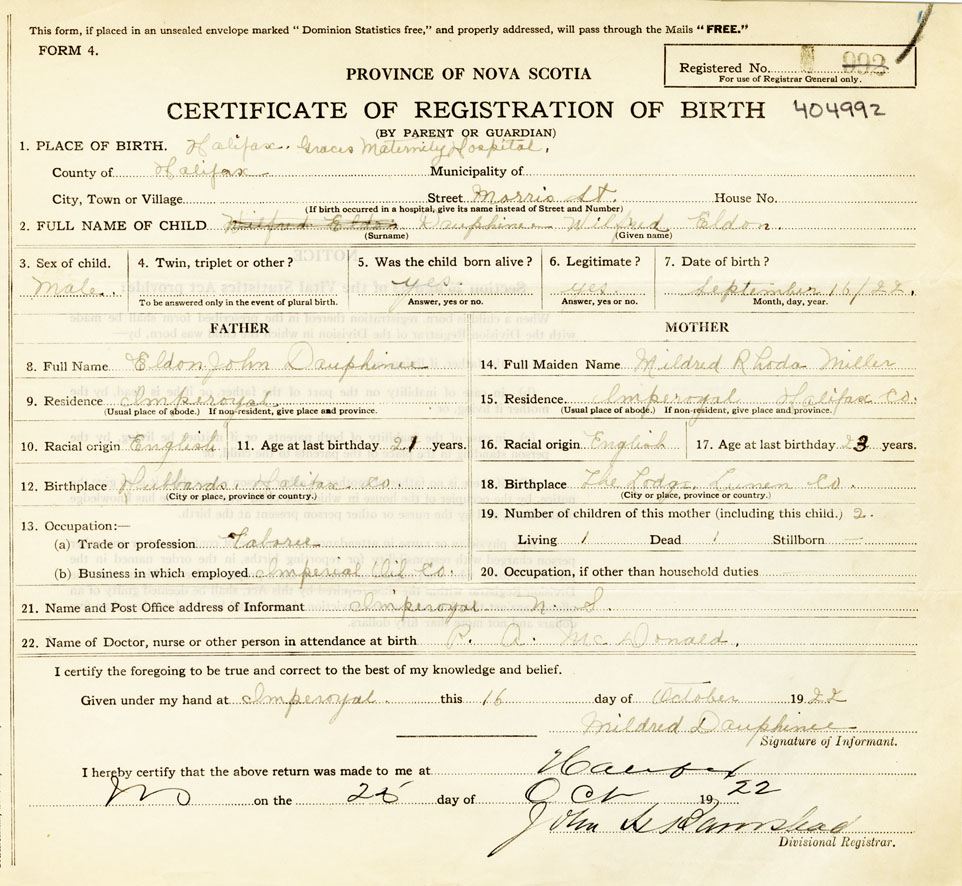 This form, if placed in an unsealed envelope marked “ Dominion Statistics free,” and properly addressed, will pass through the Mails “FREE.”
FORM 4.
Registered No. 992
For use of Registrar General only.
PROVINCE OF NOVA SCOTIA
CERTIFICATE OF REGISTRATION OF BIRTH 404992
(BY PARENT OR GUARDIAN)
1. PLACE OF BIRTH. Halifax. Graces Maternity Hospital,
County of Halifax Municipality of
City, Town or Village Street Morris St. House No.
(If birth occurred in a hospital, give its name instead of Street and Number)
2. FULL NAME OF CHILD Wilfred Eldon Dauphinee Wilfred Eldon.
(Surname) (Given name)
3. Sex of child. 4. Twin, triplet or other ? 5. Was the child born alive ? 6. Legitimate ? 7. Date of birth ?
Male. yes. yes. September 16/22.
To be answered only in the event of plural birth. Answer, yes or no. Answer, yes or no. Month, day, year.
FATHER MOTHER
8. Full Name Eldon John Dauphinee 14. Full Maiden Name Mildred Rhoda Miller
9. Residence Imperoyal 15. Residence. Imperoyal Halifax Co.
(Usual place of abode.) If non-resident, give place and province. (Usual place of abode.) If non-resident, give place and province.
10. Racial origin English 11. Age at last birthday 21 years. 16. Racial origin English 17. Age at last birthday 23 years.
12. Birthplace Hubbards, Halifax Co. 18. Birthplace The Lodge, Lunen Co.
(City or place, province or country.) (City or place, province or country.)
13. Occupation:— 19. Number of children of this mother (including this child.) 2.
(a) Trade or profession Laborer Living 1 Dead 1 Stillborn —
(b) Business in which employed Imperial Oil Co. 20. Occupation, if other than household duties
21. Name and Post Office address of Informant Imperoyal N. S.
22. Name of Doctor, nurse or other person in attendance at birth P. A. Mc Donald.
I certify the foregoing to be true and correct to the best of my knowledge and belief.
Given under my hand at Imperoyal. this 16 day of October 1922
Mildred Dauphinee
Signature of Informant.
I hereby certify that the above return was made to me at Halifax
NS on the 25 day of Oct 1922
John
Divisional Registrar.